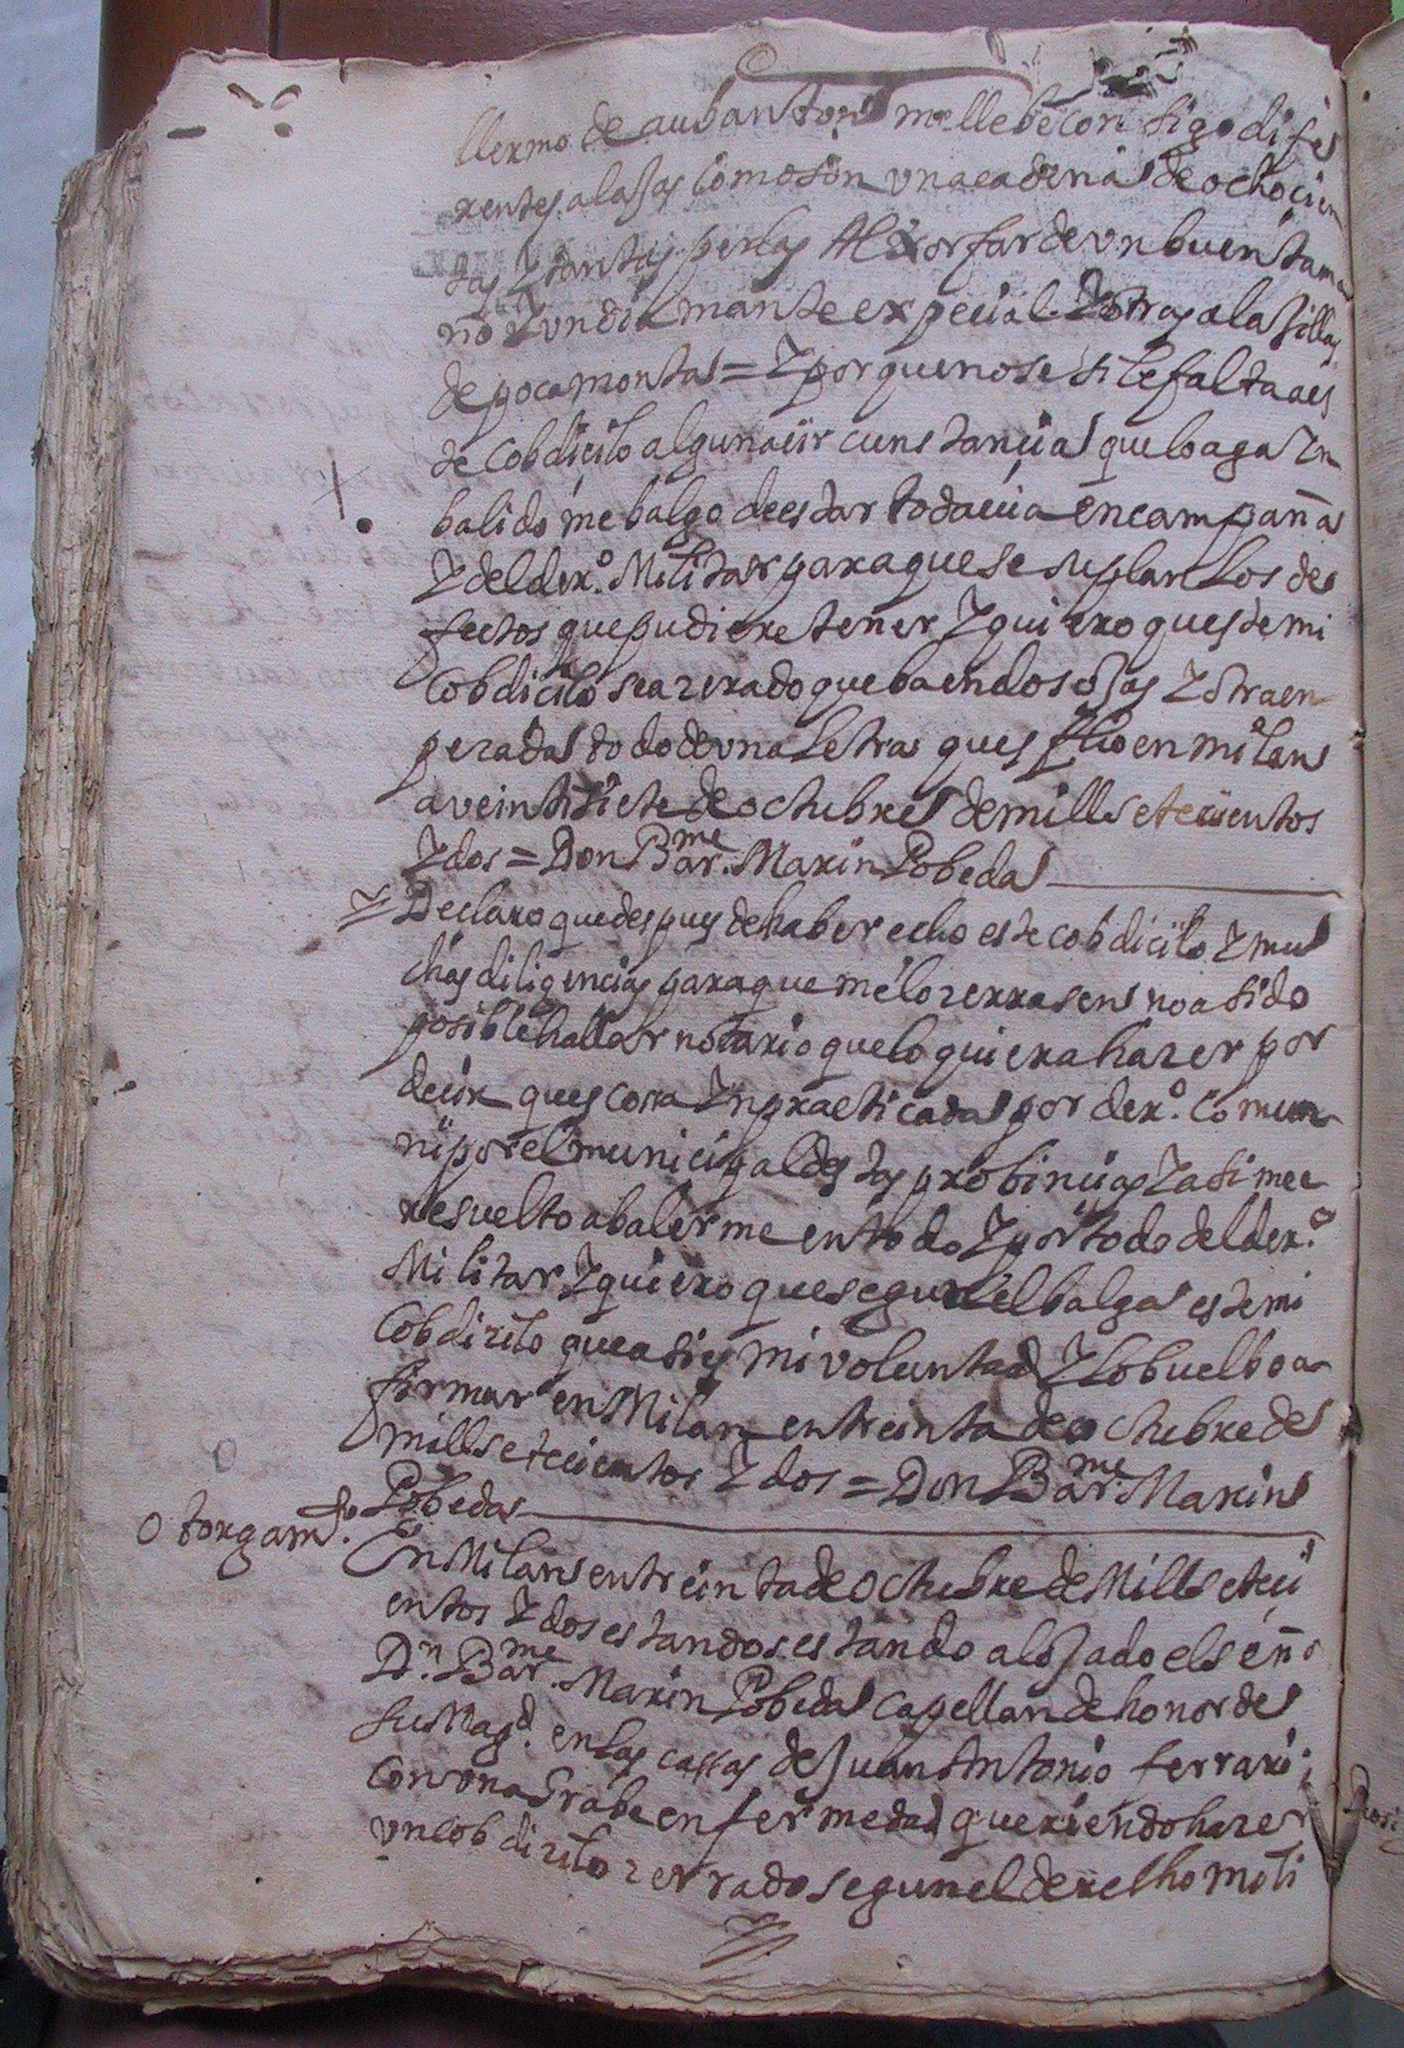 llermo de aubanton me llebe con sigo dife
rentes alajas como son vna cadena de ochocien
tas y tantas perlas Aljofar de vn buen tama
no y vn diamante expecial y otras alajillas
de poca monta = y por que no se si le falta a es
te Cobdicilo alguna cir cunstancia que lo aga yn
balido me balgo de estar todauia en campaña
y del der.º Militar para que se suplan los de
fectos que pudiere tener y quiero ques te mi
Cobdicilo sea zerado que ba en dos ojas y otra en
pezada todo de vna letra ques fho en milan
a veinti siete de octubre de mill setecientos
y dos = Don Bar.me Marin Pobeda
Declaro que despues de haber echo este cobdicilo y mu
chas diligencias para que me lo zerrasen no a sido
posible hallar notario que lo quiera hazer por
decir ques cosa ynpracticada por der.º Comun
ni por el municipal destas probincias y asi me e
resuelto a balerme en todo y por todo del der.º
Militar y quiero que segun el balga este mi
Cobdizilo que asi es mi voluntad y lo buelbo a
firmar en Milan en treinta de octubre de
mill setecientos y dos = Don Bar.me Marin
Pobeda
Otorgam.to
En Milan en treinta de Octubre de Mill seteci
entos y dos estandos estando alojado el señor
D.n Bar.me Marin Pobeda Capellan de honor de
su Mag.d en las cassas de Juan Antonio ferrari
con vna Grabe enfermedad queriendo hazer
vn cobdizilo zerrado segun el derecho mili